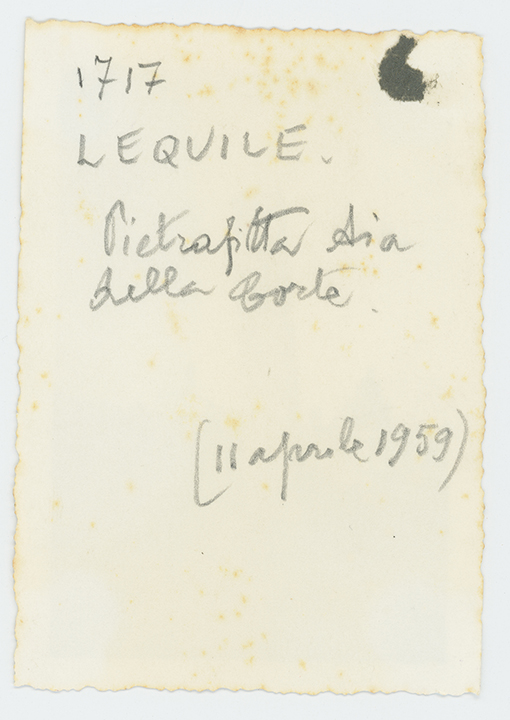 1717
LEQUILE.
Pietrafitta Aia
della Corte
(11 aprile 1959)